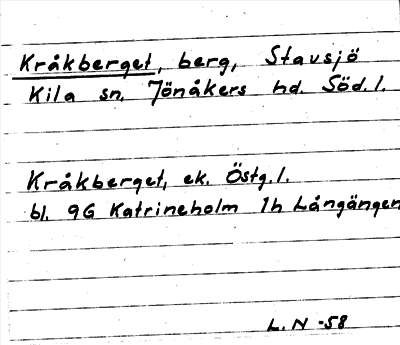 Kråkberget, berg, Stavsjö
Kila sn. Jönåkers hd. Söd.l.
Kråkberget, ek. Östg.l.
bl. 9G Katrineholm 1h Långängen
L.N -58